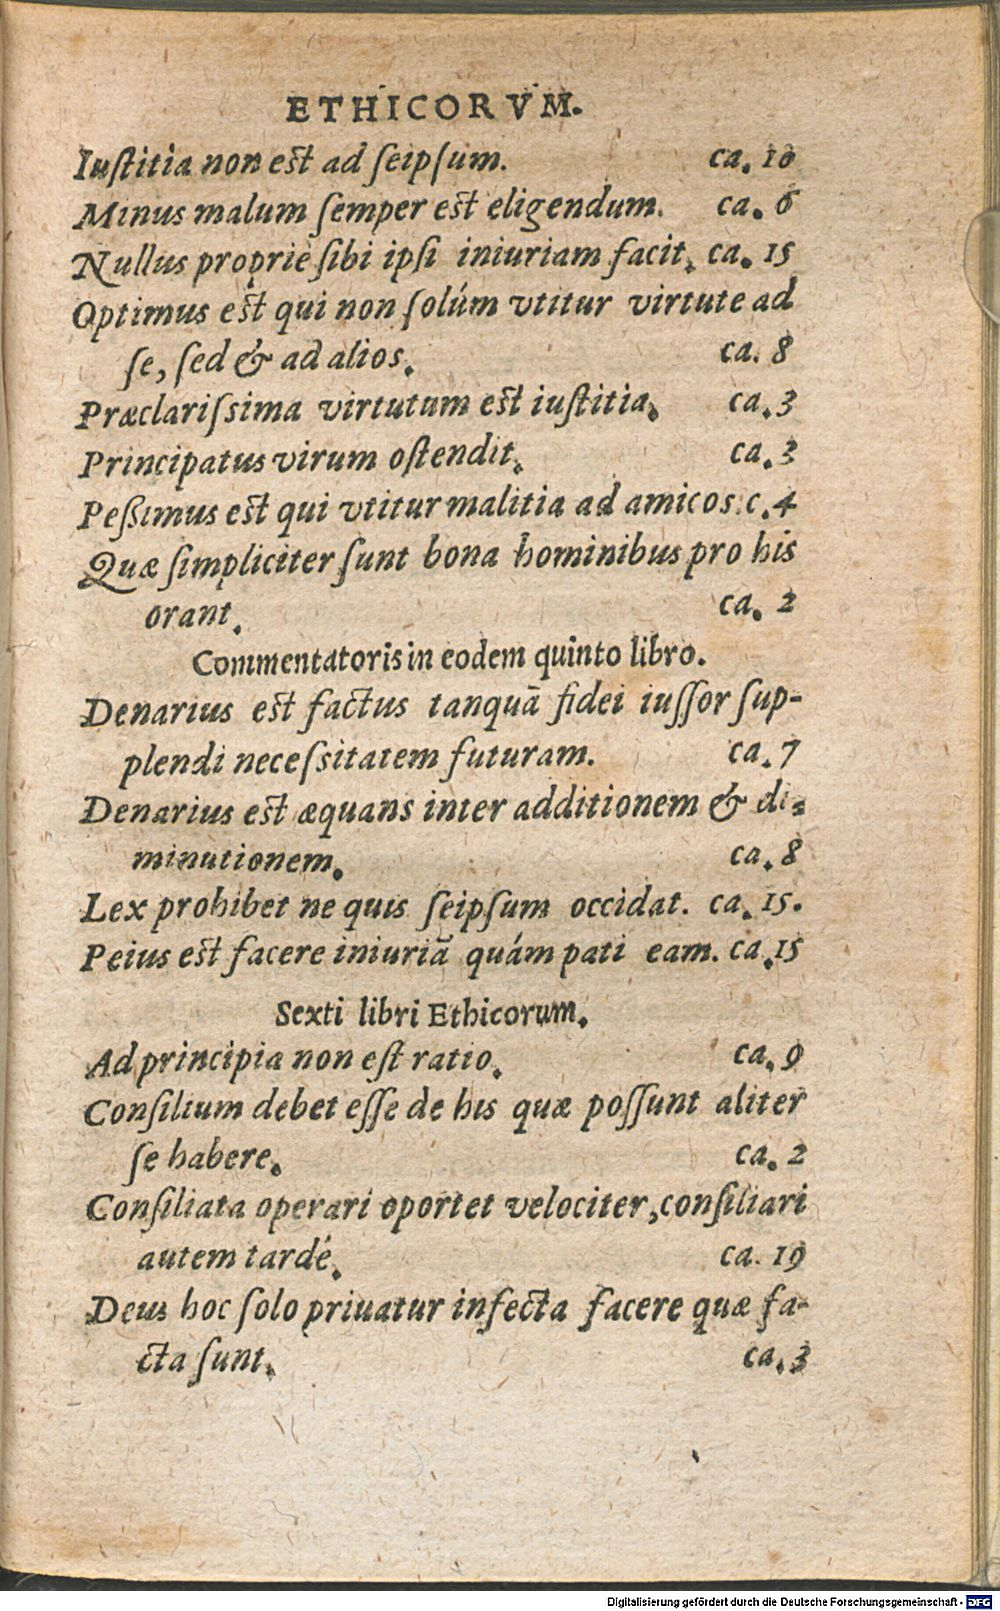 ETHICORVM.
Iuſtitia non eſt ad ſeipſum. ca. 10
Minus malum ſemper eſt eligendum. ca. 6
Nullus proprie ſibi ipſi iniuriam facit. ca. 15
Optimus eſt qui non ſolúm vtitur virtute ad
ſe, ſed & ad alios. ca. 8
Præclariſsima virtutum eſt iuſtitia. ca. 3
Principatus virum oſtendit. ca. 3
Peßimus eſt qui vtitur malitia ad amicos. c. 4
Quæ ſimpliciter ſunt bona hominibus pro his
orant. ca. 2
Commentatoris in eodem quinto libro.
Denarius eſt factus tanquā fidei iuſſor ſup-
plendi neceſsitatem futuram. ca. 7
Denarius eſt æquans inter additionem & di-
minutionem. ca. 8
Lex prohibet ne quis ſeipſum occidat. ca. 15.
Peius eſt facere iniuriā quám pati eam. ca. 15
Sexti libri Ethicorum.
Ad principia non eſt ratio. ca. 9
Conſilium debet eſſe de his quæ poſſunt aliter
ſe habere. ca. 2
Conſiliata operari oportet velociter, conſiliari
autem tardé. ca. 19
Deus hoc ſolo priuatur infecta facere quæ fa-
cta ſunt. ca. 3
Digitalisierung gefördert durch die Deutsche Forschungsgemeinschaft - DFG